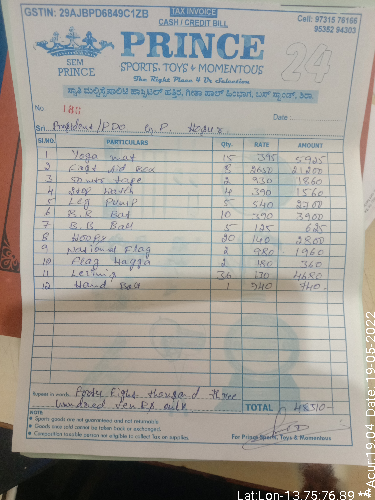 GSTIN: 29AJBPD6849C1ZB
TAX INVOICE
CASH / CREDIT BILL
Cell: 97315 76166
95382 94303
SEM
PRINCE
PRINCE
SPORTS, TOYS & MOMENTOUS
The Right Place 4 Dr Selection
24
No. 180
Date :
Sri President / PDO G.P.
Sl.NO. PARTICULARS Qty. RATE AMOUNT
1 Yoga mat 15 395 5925
2 First Aid Box 8 2650 21200
3 2 930 1860
4 Stop Watch 4 390 1560
5 Leg Pump 5 540 2700
6 B.B. Bat 10 390 3900
7 B.B. Ball 5 125 625
8 Hoops 20 140 2800
9 National Flag 2 980 1960
10 Flag 2 180 360
11 Lezims 36 130 4680
12 Hand Ball 1 940 940
Rupees in words Fourty Eight thousand three
hundred ten Rs only
TOTAL 48510-
NOTE
Sports goods are not guarantee and not returnable.
Goods once sold cannot be taken back or exchanged.
Composition taxable person not eligible to collect Tax on supplies.
For Prince Sports, Toys & Momentous
Lat:Lon-13.75:76.89 ** Acur:19.04 Date 19-05-2022